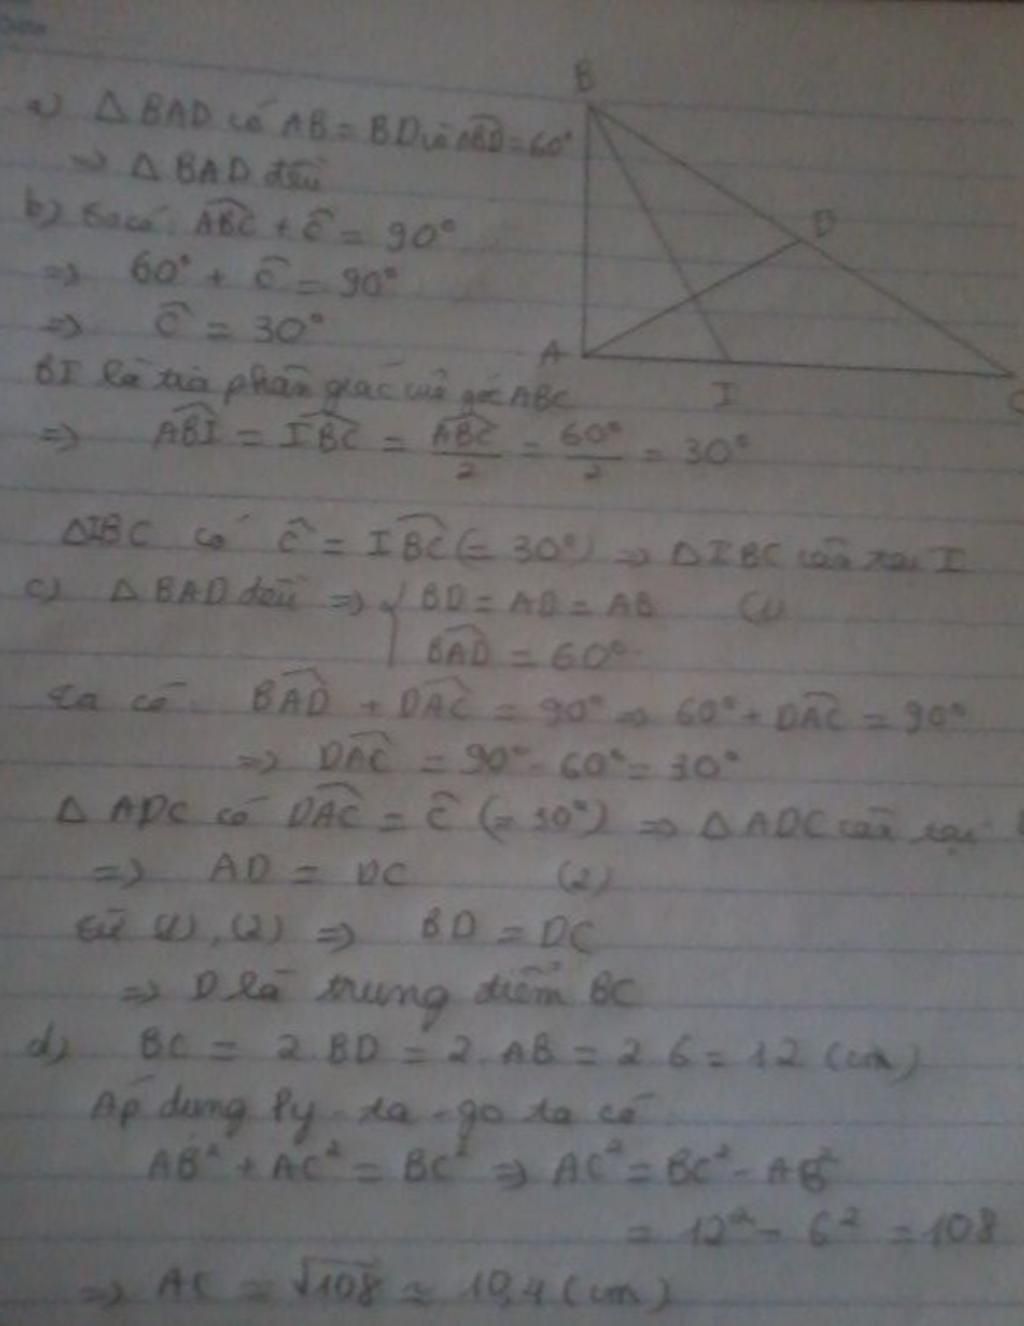 a) △BAD có AB = BD và ABD̂ = 60°
=> △BAD đều
b) Ta có: ABĈ + Ĉ = 90°
=> 60° + Ĉ = 90°
=> Ĉ = 30°
BI là tia phân giác của góc ABC
=> ABÎ = IBĈ = ABĈ/2 = 60°/2 = 30°
△IBC có Ĉ = IBĈ (= 30°) => △IBC cân tại I
c) △BAD đều => { BD = AD = AB (1)
BAD̂ = 60°
Ta có: BAD̂ + DAĈ = 90° => 60° + DAĈ = 90°
=> DAĈ = 90° - 60° = 30°
△ADC có DAĈ = Ĉ (= 30°) => △ADC cân tại
=> AD = DC (2)
Từ (1), (2) => BD = DC
=> D là trung điểm BC
d) BC = 2.BD = 2.AB = 2.6 = 12 (cm)
Áp dụng Py-ta-go ta có
AB² + AC² = BC² => AC² = BC² - AB²
= 12² - 6² = 108
=> AC = √108 ≈ 10,4 (cm)
B
D
A
I
C